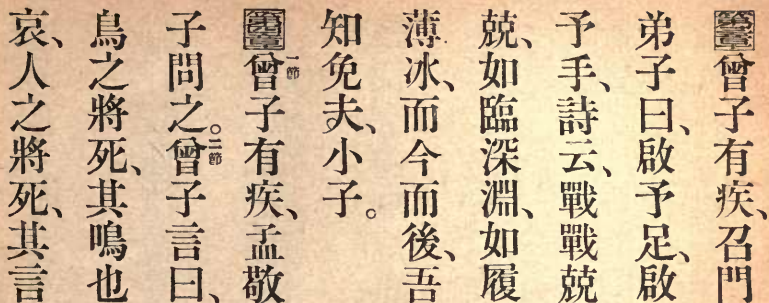 第三章曾子有疾、召門
弟子曰、啟予足、啟
予手、詩云、戰戰兢
兢、如臨深淵、如履
薄冰、而今而後、吾
知免夫、小子。
第四章一節曾子有疾、孟敬
子問之。二節曾子言曰、
鳥之將死、其鳴也
哀、人之將死、其言